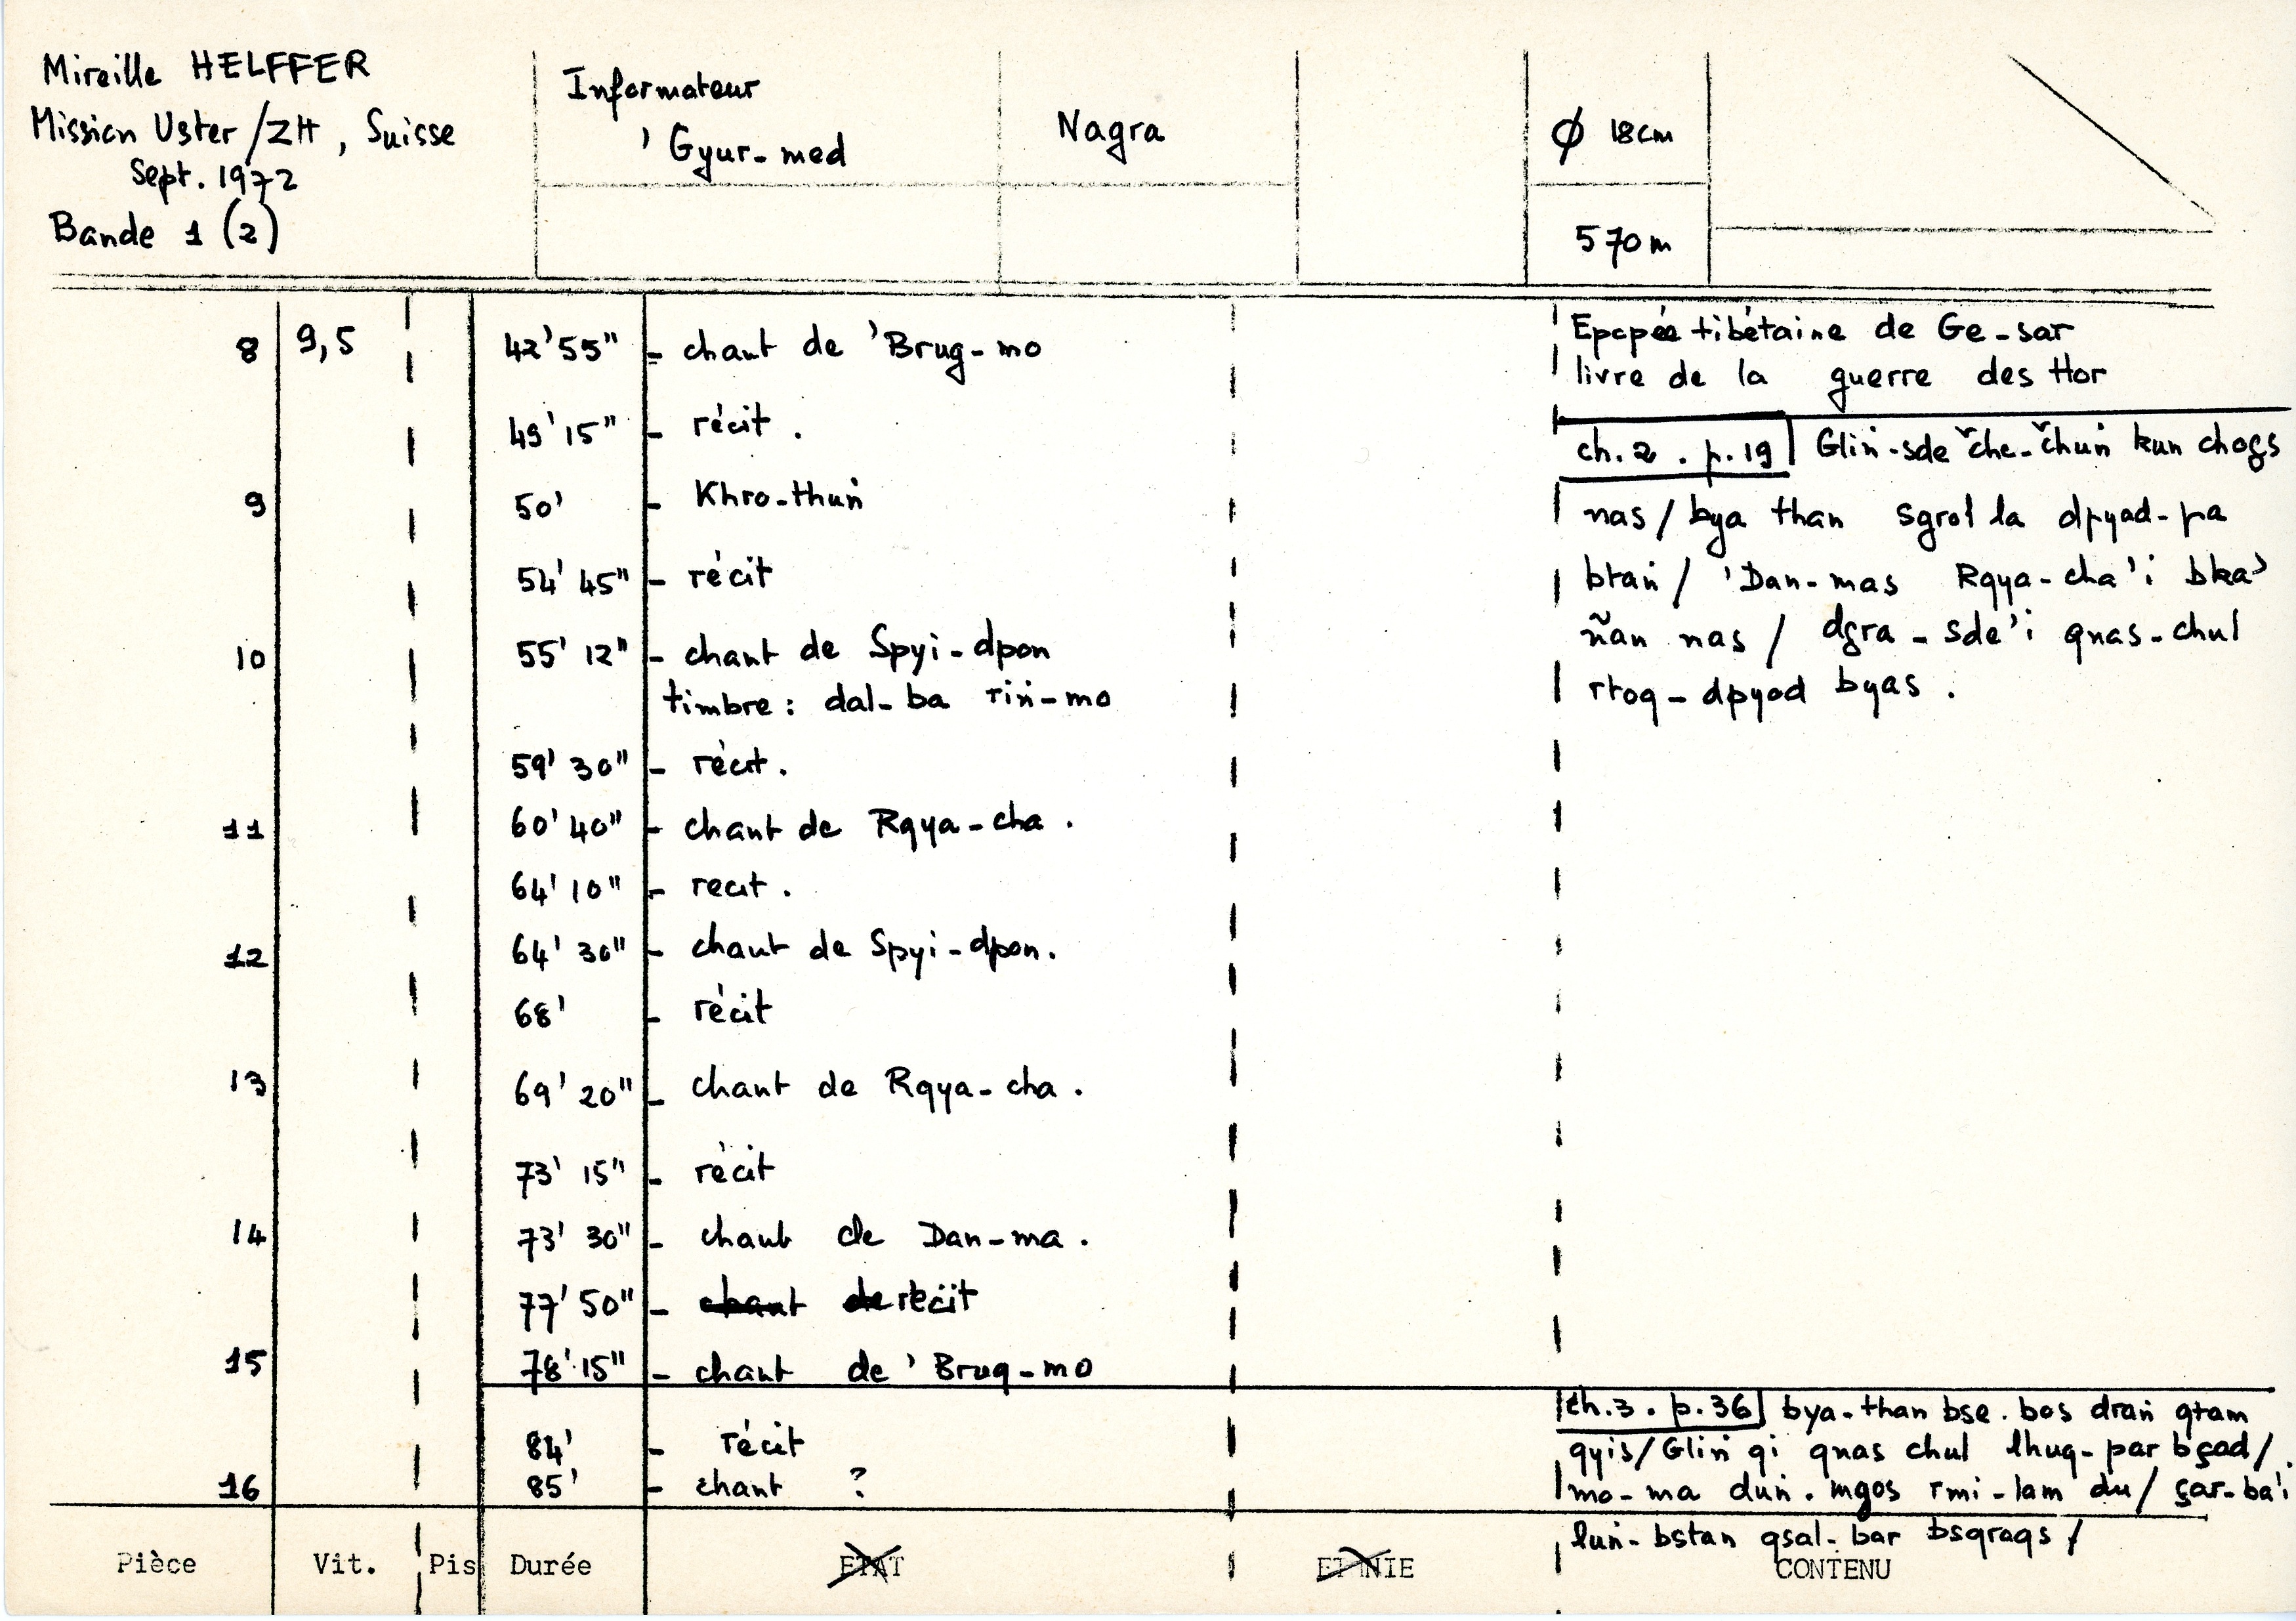 Mireille HELFFER
Mission Uster/ZH, Suisse
Sept. 1972
Bande 1 (2)
Informateur
'Gyur-med
Nagra
Ø 18cm
570m
8 9,5 42'55" - chant de 'Brug-mo
49'15" - récit.
9 50' - Khro-thuṅ
54'45" - récit
10 55'12" - chant de Spyi-dpon
timbre: dal-ba riṅ-mo
59'30" - récit.
11 60'40" - chant de Rgya-cha.
64'10" - recit.
12 64'30" - chant de Spyi-dpon.
68' - récit
13 69'20" - chant de Rgya-cha.
73'15" - récit
14 73'30" - chant de Dan-ma.
77'50" - chant de récit
15 78'15" - chant de 'Brug-mo
84' - récit
16 85' - chant ?
Epopée tibétaine de Ge-sar
livre de la guerre des Hor
ch.2. p.19 Gliṅ-sde čhe-čhuṅ kun chogs
nas / bya than sgrol la dpyad-pa
btaṅ / 'Dan-mas Rgya-cha'i bka'
ñan nas / dgra-sde'i gnas-chul
rtog-dpyod byas.
ch.3. p.36 bya-than bse.bos draṅ gtam
gyis/Gliṅ gi gnas chul lhug-par bçad/
mo-ma duṅ.mgos rmi-lam du/ çar-ba'i
luṅ-bstan gsal-bar bsgrags /
Pièce Vit. Pis Durée ETAT ETHNIE CONTENU